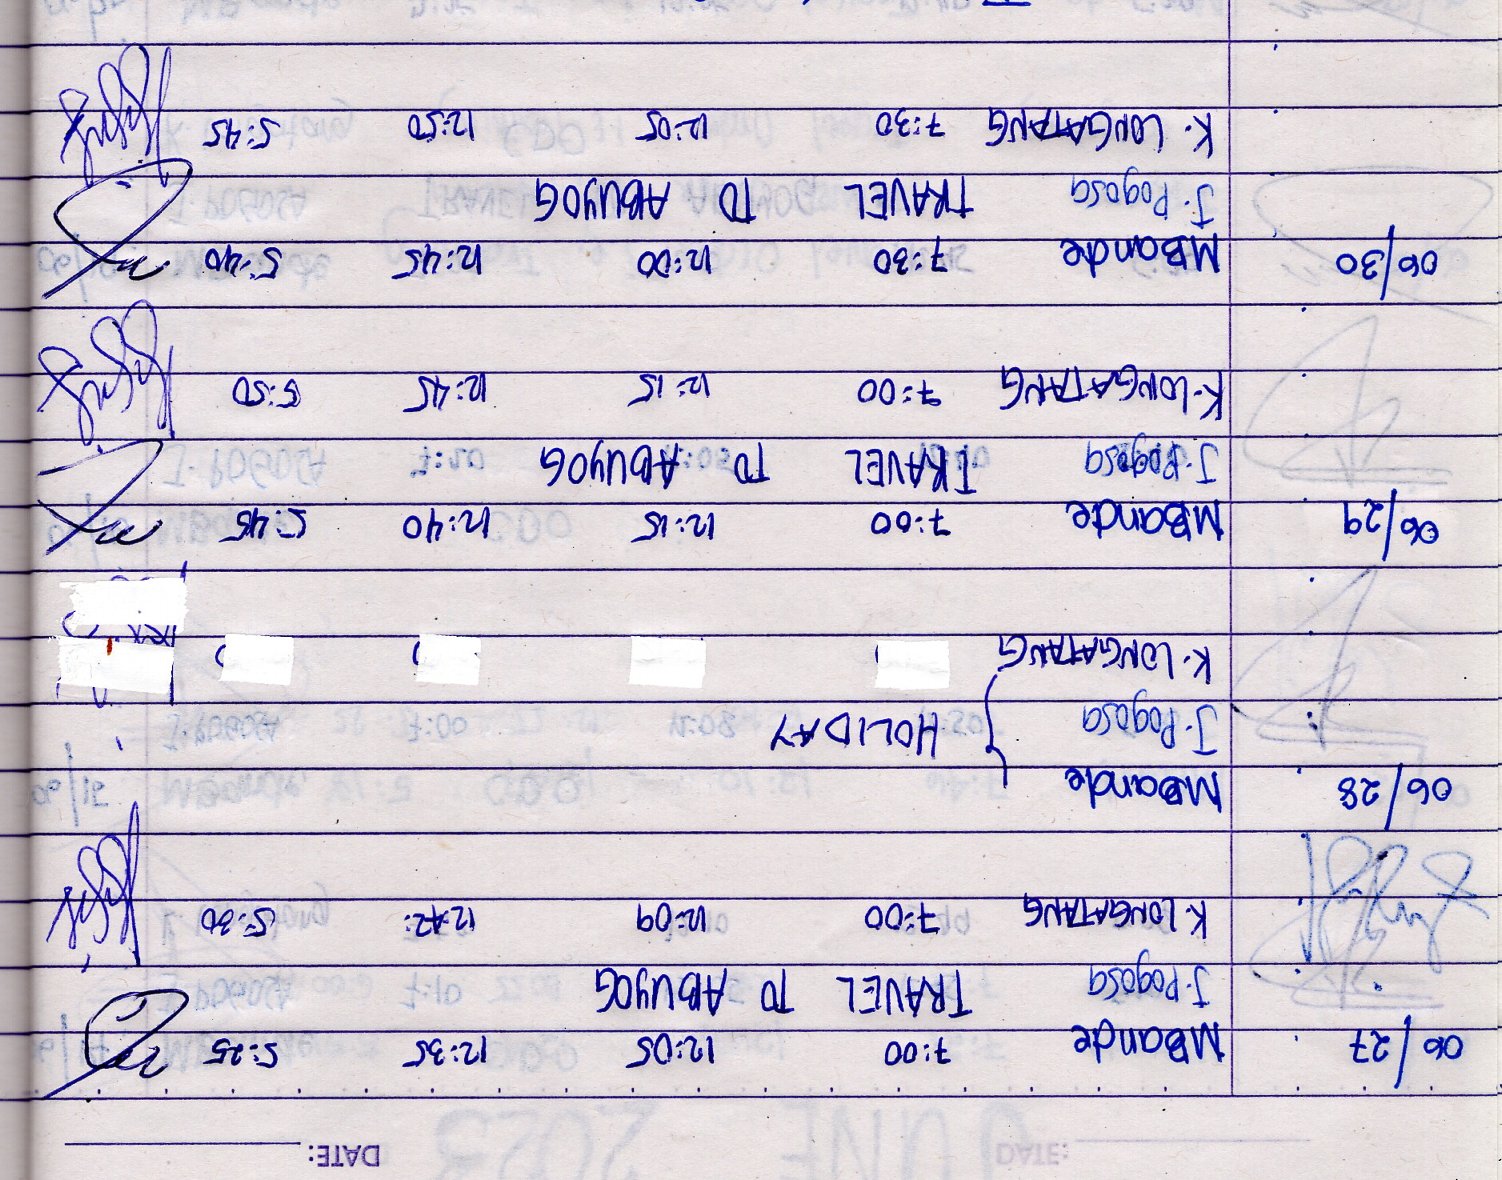 DATE:
06/27 MBande 7:00 12:05 12:35 5:25
J. Pogosa TRAVEL TO ABUYOG
K. LONGATANG 7:00 12:09 12:42 5:30
06/28 MBande
J. Pogosa HOLIDAY
K. LONGATANG
06/29 MBande 7:00 12:15 12:40 5:45
J. Pogosa TRAVEL TO ABUYOG
K. LONGATANG 7:00 12:15 12:45 5:50
06/30 MBande 7:30 12:00 12:45 5:40
J. Pogosa TRAVEL TO ABUYOG
K. LONGATANG 7:30 12:05 12:50 5:45